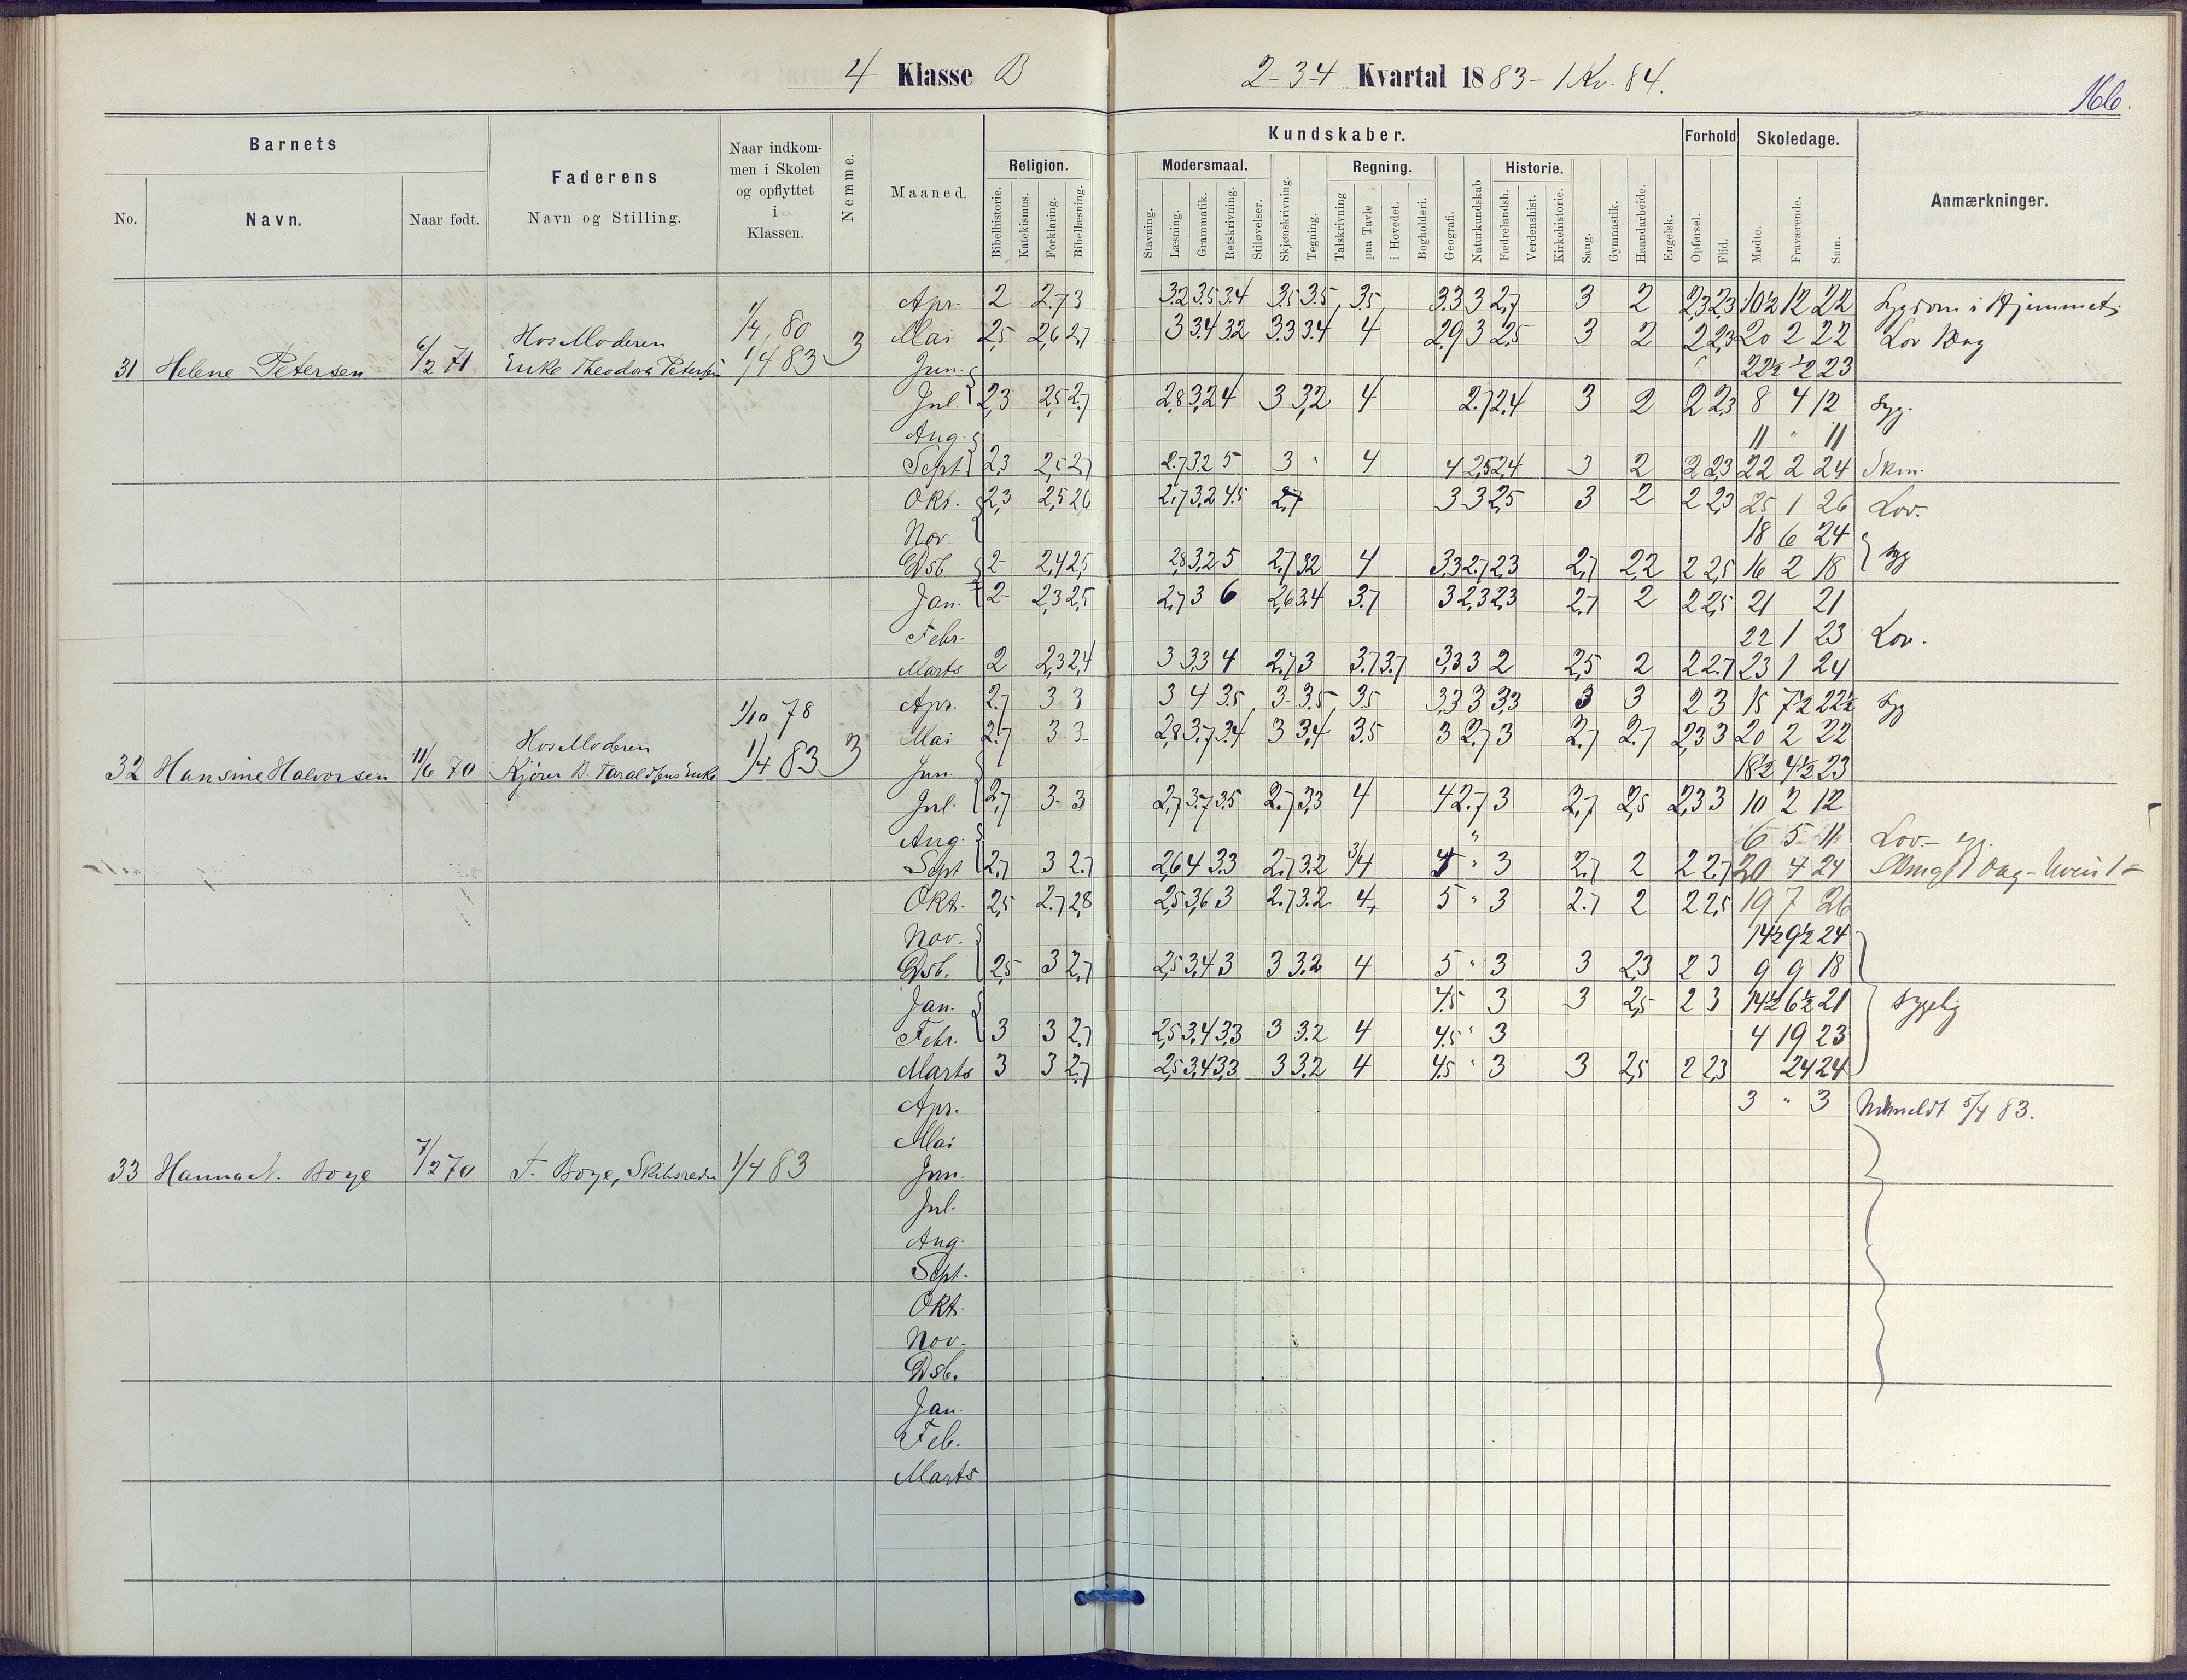 4 Klasse B
2-3-4 Kvartal 1883-1 Kv. 84.
166.
Barnets
Faderens
Naar indkommen i Skolen og opflyttet i Klassen.
Nemme.
Maaned.
Kundskaber.
Forhold
Skoledage.
Anmærkninger.
No.
Navn.
Naar født.
Navn og Stilling.
Religion.
Modersmaal.
Regning.
Historie.
Bibelhistorie. Katekismus. Forklaring. Bibellæsning. Stavning. Læsning. Grammatik. Retskrivning. Stiløvelser. Skjønskrivning. Tegning. Talskrivning paa Tavle i Hovedet. Bogholderi. Geografi. Naturkundskab Fædrelandsh. Verdenshist. Kirkehistorie. Sang. Gymnastik. Haandarbeide. Engelsk. Opførsel. Flid. Mødte. Fraværende. Sum.
Apr. 2 2.7 3 3.2 3.5 3.4 3.5 3.5 3.5 3.3 3 2,7 3 2 2,3 2,3 10½ 12 22 Sygdom i Hjemmet
1/4 80
Mai 2,5 2,6 2,7 3 3.4 3.2 3.3 3.4 4 2.9 3 2,5 3 2 2 2,3 20 2 22 Lov 1 Dag
Hos Moderen
31 Helene Petersen 6/2 71 Enke Theodora Petersen 1/4 83 3 Jun. 22½ ½ 23
Jul. 2,3 2,5 2,7 2,8 3,2 4 3 3,2 4 2.7 2.4 3 2 2 2,3 8 4 12 Syg.
Aug. 11 " 11
Sept 2,3 2,5 2,7 2.7 3.2 5 3 " 4 4 2,5 2,4 3 2 2 2,3 22 2 24 Skm.
Okt. 2,3 2,5 2,6 2,7 3,2 4.5 2,7 3 3 2,5 3 2 2 2,3 25 1 26 Lov.
Nov. 18 6 24
Dsb 2 2,4 2,5 2,8 3,2 5 2.7 3.2 4 3,3 2.7 2,3 2,7 2,2 2 2,5 16 2 18 Syg
Jan. 2 2,3 2,5 2,7 3 6 2,6 3.4 3.7 3 2,3 2,3 2.7 2 2 2,5 21 21
Febr. 22 1 23 Lov.
Marts 2 2,3 2,4 3 3,3 4 2.7 3 3.7 3.7 3,3 3 2 2,5 2 2 2.7 23 1 24
Apr. 2.7 3 3 3 4 3.5 3 3.5 3.5 3,3 3 3,3 3 3 2 3 15 7½ 22½ Syg
1/10 78
Mai 2.7 3 3 2,8 3.7 3.4 3 3,4 3.5 3 2,7 3 2.7 2.7 2,3 3 20 2 22
Hos Moderen
32 Hansine Halvorsen 11/6 70 Kjører B. Taraldsens Enke 1/4 83 3 Jun. 18½ 4½ 23
Jul. 2,7 3 3 2,7 3.7 3.5 2.7 3,3 4 4 2.7 3 2,7 2,5 2,3 3 10 2 12
Aug. " 6 5 11 Lov.
Sept 2,7 3 2.7 2,6 4 3.3 2.7 3.2 3/4 " 3 2.7 2 2 2.7 20 4 24
Okt. 2,5 2.7 2,8 2,5 3,6 3 2.7 3.2 4+ 5 " 3 2.7 2 2 2,5 19 7 26
Nov. 14½ 9½ 24
Dsb. 2,5 3 2,7 2,5 3,4 3 3 3.2 4 5 " 3 3 2,3 2 3 9 9 18
Jan. 4.5 3 3 2,5 2 3 14½ 6½ 21 Sygelig
Febr. 3 3 2.7 2,5 3,4 3,3 3 3.2 4 4.5 " 3 4 19 23
Marts 3 3 2,7 2,5 3,4 3,3 3 3.2 4 4.5 " 3 3 2,5 2 2,3 24 24
Apr. 3 " 3 Udmeldt 5/4 83.
Mai
33 Hanna N. Boye 7/2 70 T. Boye, Skibsreder 1/4 83 Jun.
Jul.
Aug.
Sept.
Okt.
Nov.
Dsb.
Jan.
Feb.
Marts